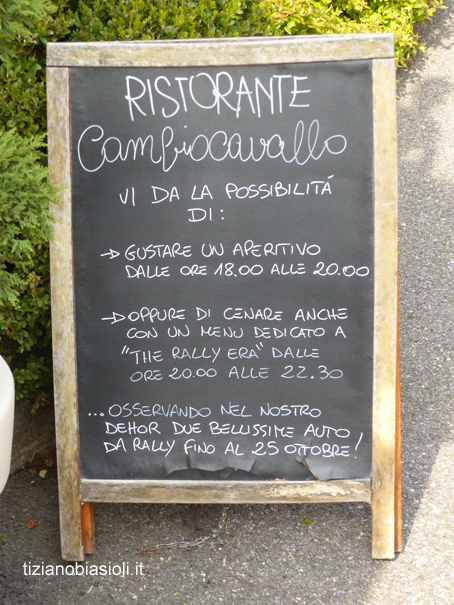 RISTORANTE
Cambiocavallo
VI DA LA POSSIBILITÁ
DI:
→ GUSTARE UN APERITIVO
DALLE ORE 18.00 ALLE 20.00
→ OPPURE DI CENARE ANCHE
CON UN MENU DEDICATO A
"THE RALLY ERA" DALLE
ORE 20.00 ALLE 22.30
...OSSERVANDO NEL NOSTRO
DEHOR DUE BELLISSIME AUTO
DA RALLY FINO AL 25 OTTOBRE!
tizianobiasioli.it